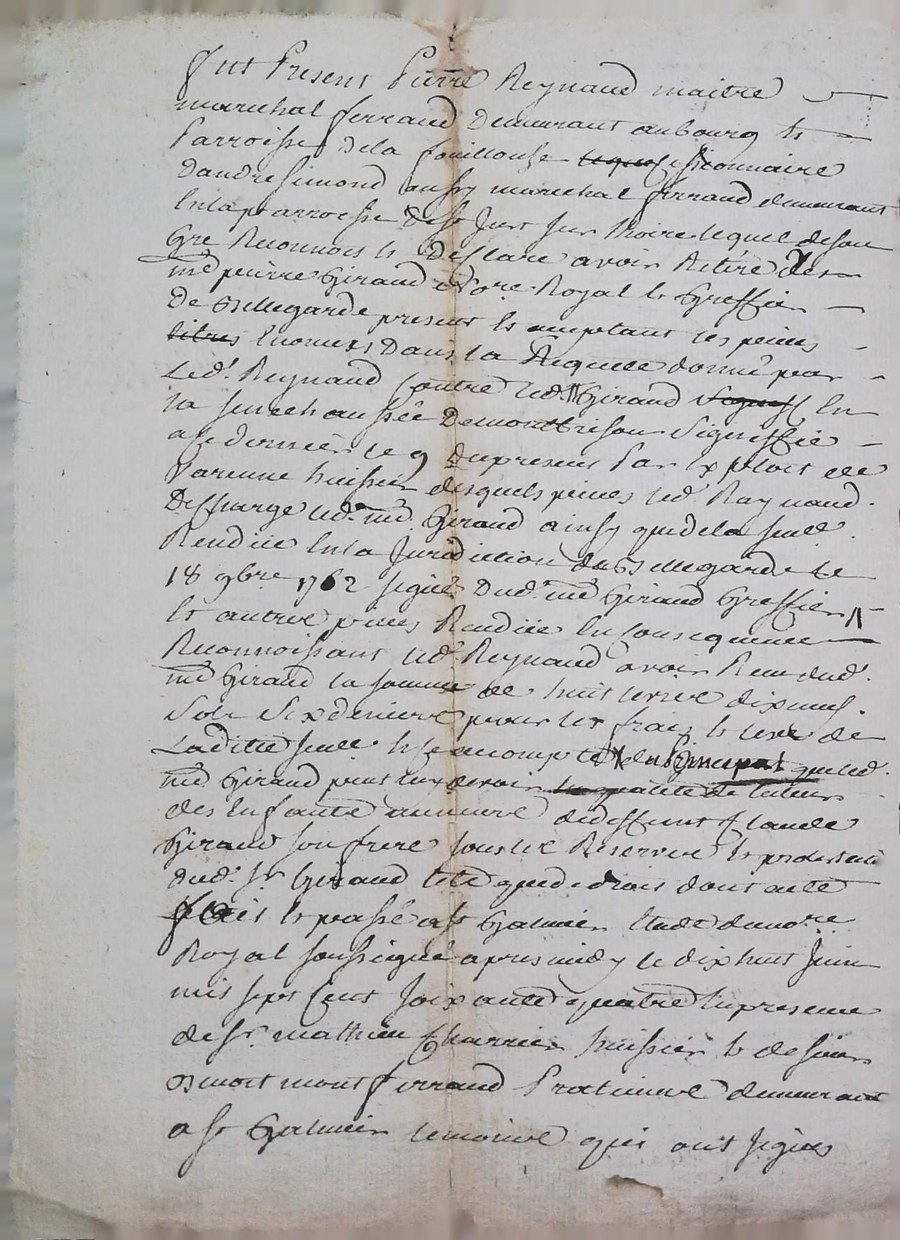 fut Present Pierre Reynaud maitre
marechal ferrand demeurant au bourg et
Parroisse de la fouillouse cessionnaire
dandre Simond aussy marechal ferrand demeurant
en la parroisse de st Just sur Loire lequel de son
Gre Reconnois et Desclare avoir Retiré de
me pierre Giraud nore Royal et Greffier
de Bellegarde present et acceptant les pieces
titres enoncés Dans la Requete donné par
Ledt Reynaud contre ledt Giraud en
la senechaussée de montbrison signiffié
a ce dernier le 9 du present par Exploit de
Varenne huissier desquels pieces led Raynaud
Descharge led. me. Giraud ainsy que de la sentce
Rendue en la Juridiction de Bellegarde le
18 9bre 1762 signé dud. me Giraud Greffier
et autres pieces Rendue en consequence
Reconnoissant led Reynaud avoir Receu dud.
me Giraud la somme de huit livres dix neuf
sols six deniers pour les frais et de
Laditte sentce et a compte du principal que led.
me Giraud peut luy devoir en qualité de tuteur
des enfants mineurs de deffunt Claude
Giraud son frere sous les Reserves et
dud. sr Giraud telle que de droit dont acte
fait et passé a st Galmier Etude du nore
Royal soussigné apres midy le dix huit Juin
mil sept cent soixante quatre en presence
de sr. mathieu Charrier huissier et de sieur
Benoit montferrand Praticien demeurant
a st Galmier temoins qui ont signés